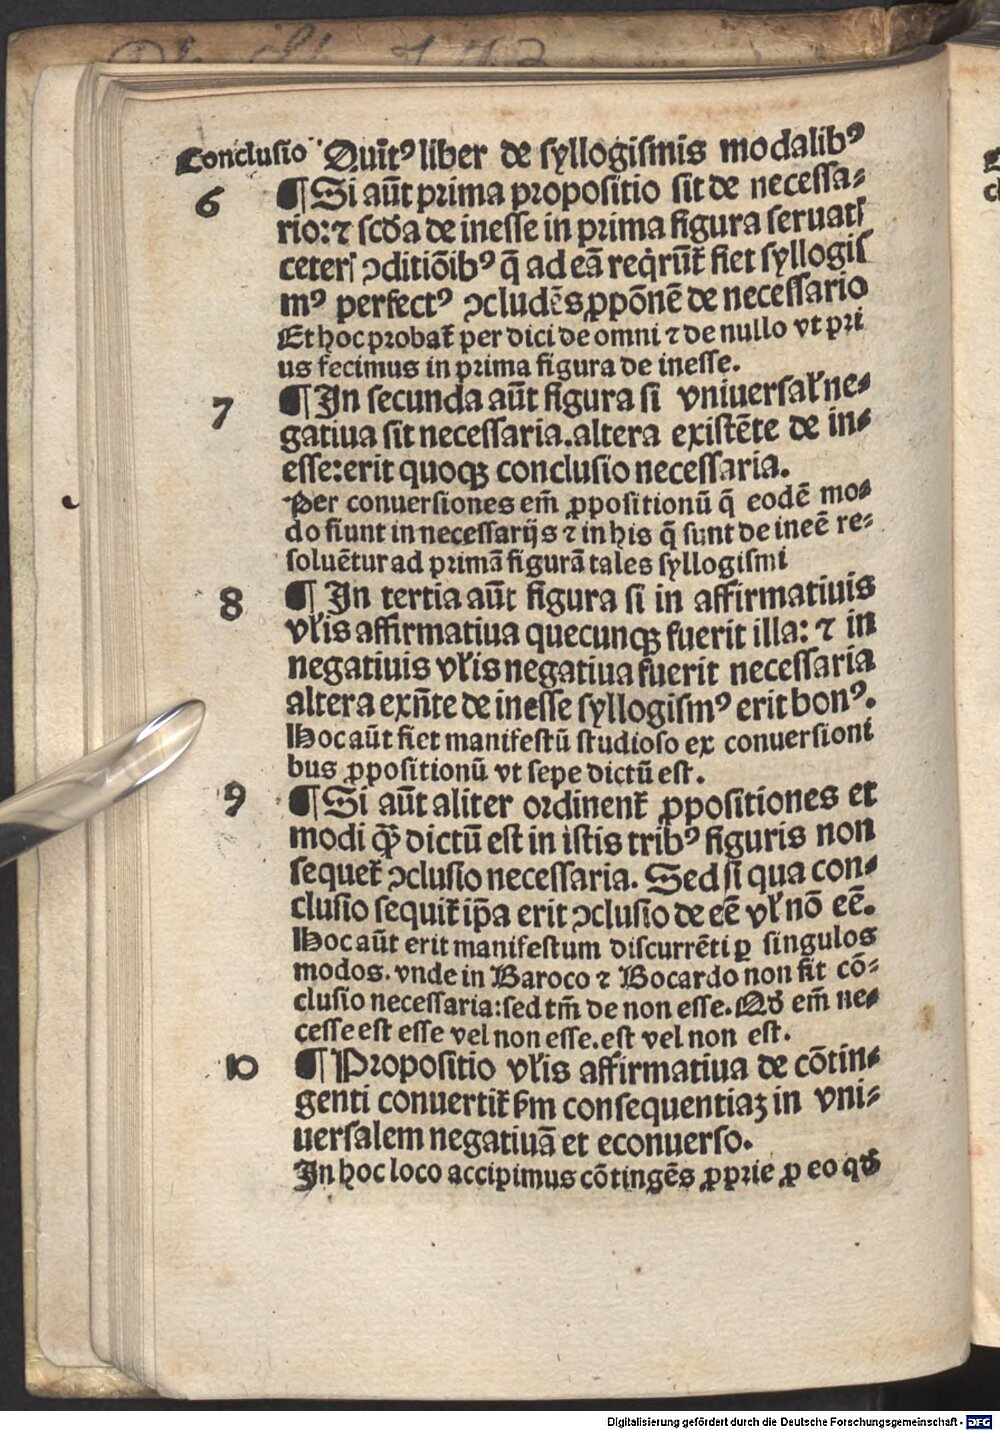 Conclusio Quīt⁹ liber de ſyllogiſmis modalib⁹
6 ¶ Si aūt prima propoſitio ſit de neceſſa⸗
rio: ⁊ ſcd̄a de ineſſe in prima figura ſeruatꝭ
ceterꝭ ↄditiōib⁹ q̄ ad eā reqͥrūt̃ fiet ſyllogiſ
m⁹ perfect⁹ ↄcludēs ꝓpōnē de neceſſario
Et hoc probat̃ per dici de omni ⁊ de nullo vt pri
us fecimus in prima figura de ineſſe.
7 ¶ In ſecunda aūt figura ſi vniuerſaƚ ne⸗
gatiua ſit neceſſaria. altera exiſtēte de in⸗
eſſe: erit quoqꝫ concluſio neceſſaria.
Per conuerſiones em̄ ꝓpoſitionū q̄ eodē mo⸗
do fiunt in neceſſarijs ⁊ in his q̄ ſunt de ineē re⸗
ſoluētur ad primā figurā tales ſyllogiſmi
8 ¶ In tertia aūt figura ſi in affirmatiuis
vƚis affirmatiua quecunqꝫ fuerit illa: ⁊ in
negatiuis vƚis negatiua fuerit neceſſaria
altera exn̄te de ineſſe ſyllogiſm⁹ erit bon⁹.
Hoc aūt fiet manifeſtū ſtudioſo ex conuerſioni
bus ꝓpoſitionū vt ſepe dictū eſt.
9 ¶ Si aūt aliter ordinent̃ ꝓpoſitiones et
modi ꝙ̄ dictū eſt in iſtis trib⁹ figuris non
ſequet̃ ↄcluſio neceſſaria. Sed ſi qua con⸗
cluſio ſequit̃ ip̄a erit ↄcluſio de eē vƚ nō eē.
Hoc aūt erit manifeſtum diſcurrēti ꝑ ſingulos
modos. vnde in Baroco ⁊ Bocardo non fit cō⸗
cluſio neceſſaria: ſed tm̄ de non eſſe. Qd̄ em̄ ne⸗
ceſſe eſt eſſe vel non eſſe. eſt vel non eſt.
10 ¶ Propoſitio vƚis affirmatiua de cōtin⸗
genti conuertit̃ ẜm conſequentiaꝫ in vni⸗
uerſalem negatiuā et econuerſo.
In hoc loco accipimus cōtingēs ꝓprie ꝓ eo qd̄
Digitalisierung gefördert durch die Deutsche Forschungsgemeinschaft - DFG